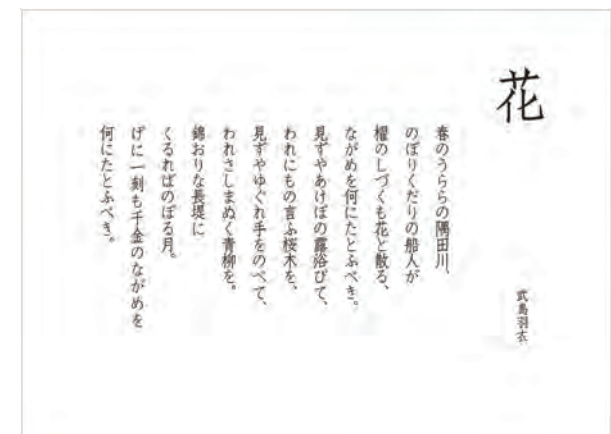 花
武島羽衣
春のうららの隅田川、
のぼりくだりの船人が
櫂のしづくも花と散る、
ながめを何にたとふべき。
見ずやあけぼの露浴びて、
われにもの言ふ桜木を、
見ずやゆぐれ手をのべて、
われさしまぬく青柳を。
錦おりな長堤に
くるればのぼる月。
げに一刻も千金のながめを
何にたとふべき。